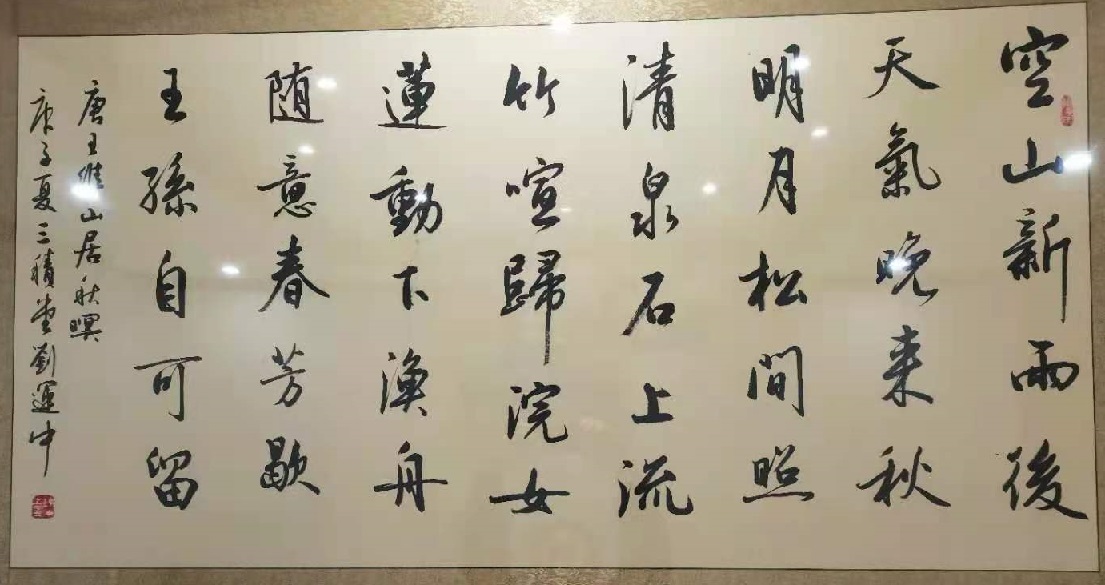 空山新雨後
天氣晚来秋
明月松間照
清泉石上流
竹喧歸浣女
蓮動下漁舟
随意春芳歇
王孫自可留
唐王維山居秋暝
庚子夏三積堂劉運中